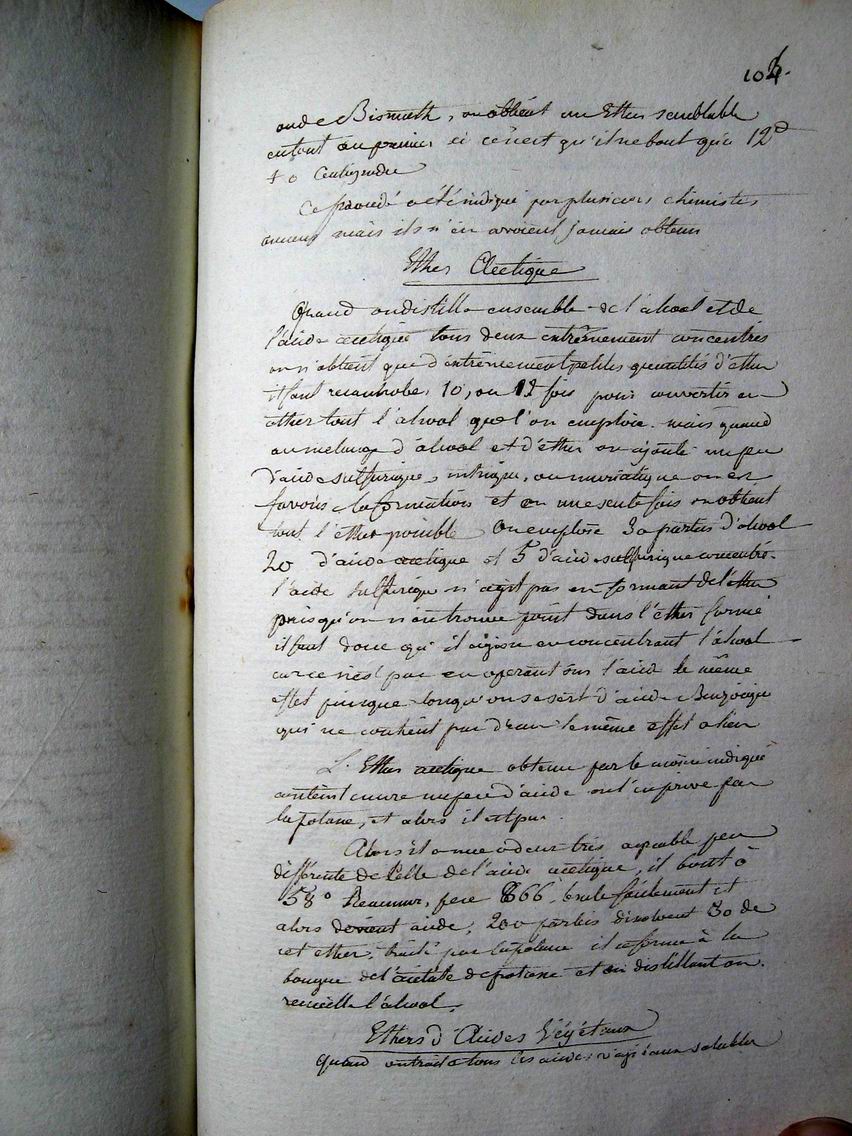 104.
ou de Bismuth, on obtient un Ether semblable
en tout au premier si ce n'est qu'il ne bout qu'à 12d
+ 0 Centigrade
Ce procédé a été indiqué par plusieurs chimistes
mais ils n'en avoient jamais obtenu
Ether Acetique
Quand on distille ensemble de l'alcool et de
l'acide acetique tous deux extrêmement concentrés
on n'obtient que d'extrêmement petites quantités d'ether
il faut recohober 10, ou 12 fois pour convertir en
ether tout l'alcool que l'on emploie. mais quand
au melange d'alcool et d'ether on ajoute un peu
d'acide sulfurique, nitrique, ou muriatique on en
favorise la formation et en une seule fois on obtient
tout l'ether possible On emploie 30 parties d'alcool
20 d'acide acetique et 5 d'acide sulfurique concentré.
l'acide sulfurique n'agit pas en formant de l'ether
puisqu'on n'en trouve point dans l'ether formé
il faut donc qu'il agisse en concentrant l'alcool
car ce n'est pas en operant sur l'acide le même
effet puisque lorsqu'on se sert d'acide Benzoique
qui ne contient pas d'eau le même effet a lieu
L'Ether acetique obtenu par le moien indiqué
contient encore un peu d'acide on l'en prive par
la potasse, et alors il est pur.
Alors il a une odeur très agreable peu
differente de celle de l'acide acetique, il bout à
58° Reaumur, pese 866. brule facilement et
alors devient acide, 200 parties dissolvent 30 de
cet ether, traité par la potasse il se forme à la
longue de l'acetate de potasse et en distillant on
recueille l'alcool.
Ethers d'Acides Végétaux
Quand on traite tous les acides végétaux solubles